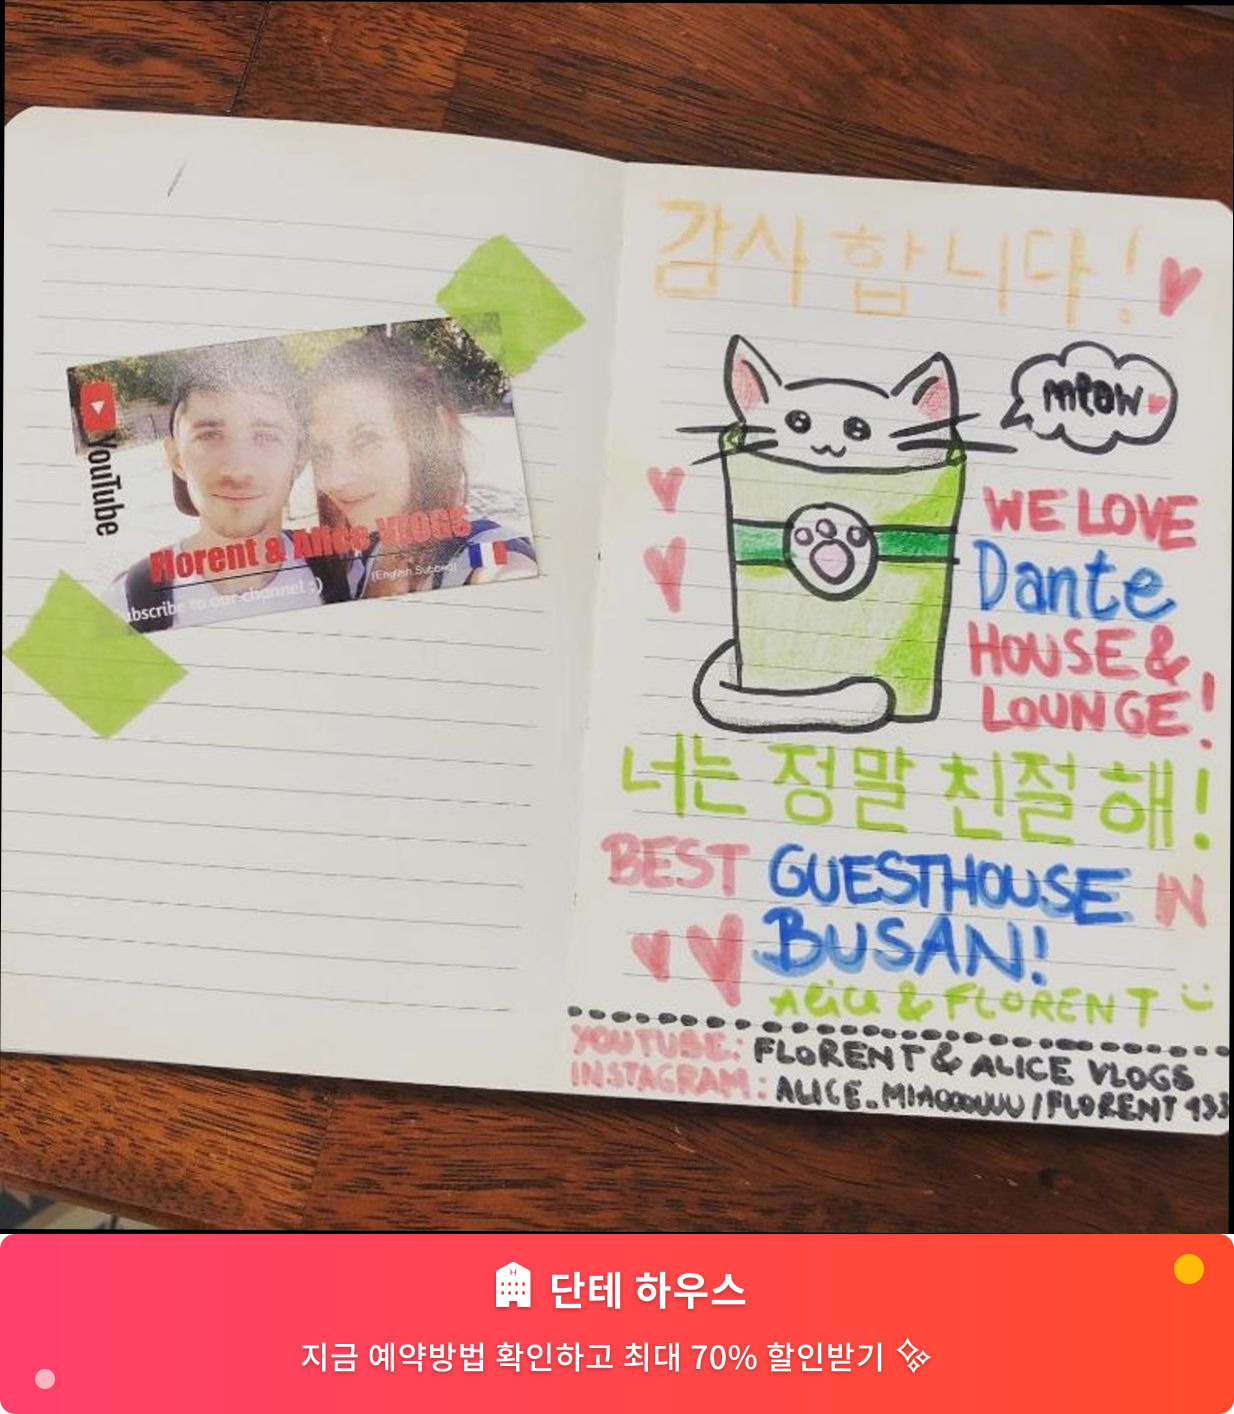 YouTube
Florent & Alice VLOGS
(English Subbed)
ubscribe to our channel :)
감사합니다!
meow
WE LOVE
Dante
HOUSE &
LOUNGE!
너는 정말 친절해!
BEST GUESTHOUSE IN
BUSAN!
ALiCE & FLORENT
YOUTUBE: FLORENT & ALICE VLOGS
INSTAGRAM: ALICE_MIAOOOUUU / FLORENT 193
단테 하우스
지금 예약방법 확인하고 최대 70% 할인받기